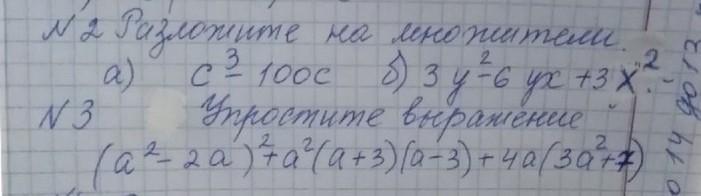 N2 Разложите на множители.
а) c³ - 100c б) 3y² - 6yx + 3x².
N3 Упростите выражение
(a² - 2a)² + a²(a+3)(a-3) + 4a(3a²+7)
14 до 17